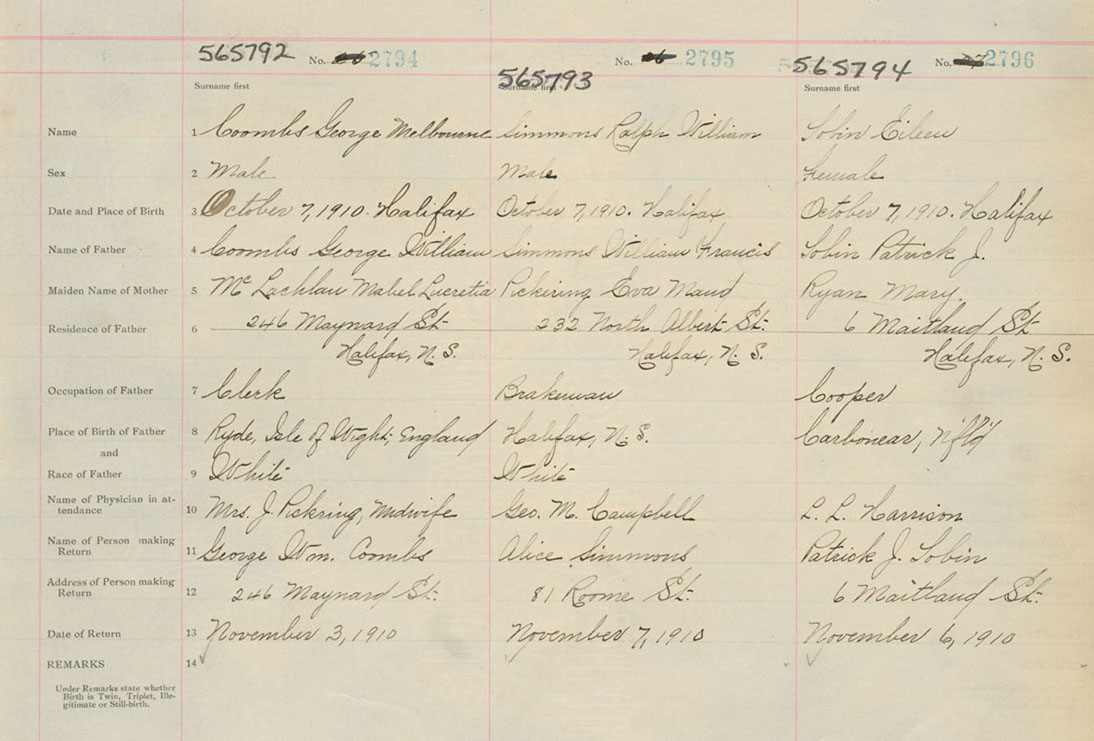 565792 No. 2794
565793 No. 2795
565794 No. 2796
Surname first Surname first Surname first
Name 1 Coombs George Melbourne Simmons Ralph William Tobin Eileen
Sex 2 Male. Male Female
Date and Place of Birth 3 October 7, 1910. Halifax October 7, 1910. Halifax October 7, 1910. Halifax
Name of Father 4 Coombs George William Simmons William Francis Tobin Patrick J.
Maiden Name of Mother 5 McLachlan Mabel Lucretia Pickering Eva Maud Ryan Mary.
Residence of Father 6 246 Maynard St. 232 North Albert St. 6 Maitland St.
Halifax, N.S. Halifax, N.S. Halifax, N.S.
Occupation of Father 7 Clerk Brakeman Cooper
Place of Birth of Father 8 Ryde, Isle of Wight, England Halifax, N.S. Carbonear, Nfld
and
Race of Father 9 White White
Name of Physician in at-
tendance 10 Mrs. J Pickring, Midwife Geo. M. Campbell L. L. Harrison
Name of Person making
Return 11 George Wm. Coombs Alice Simmons Patrick J. Tobin
Address of Person making
Return 12 246 Maynard St. 81 Roome St. 6 Maitland St.
Date of Return 13 November 3, 1910 November 7, 1910 November 6, 1910
REMARKS 14
Under Remarks state whether
Birth is Twin, Triplet, Ille-
gitimate or Still-birth.